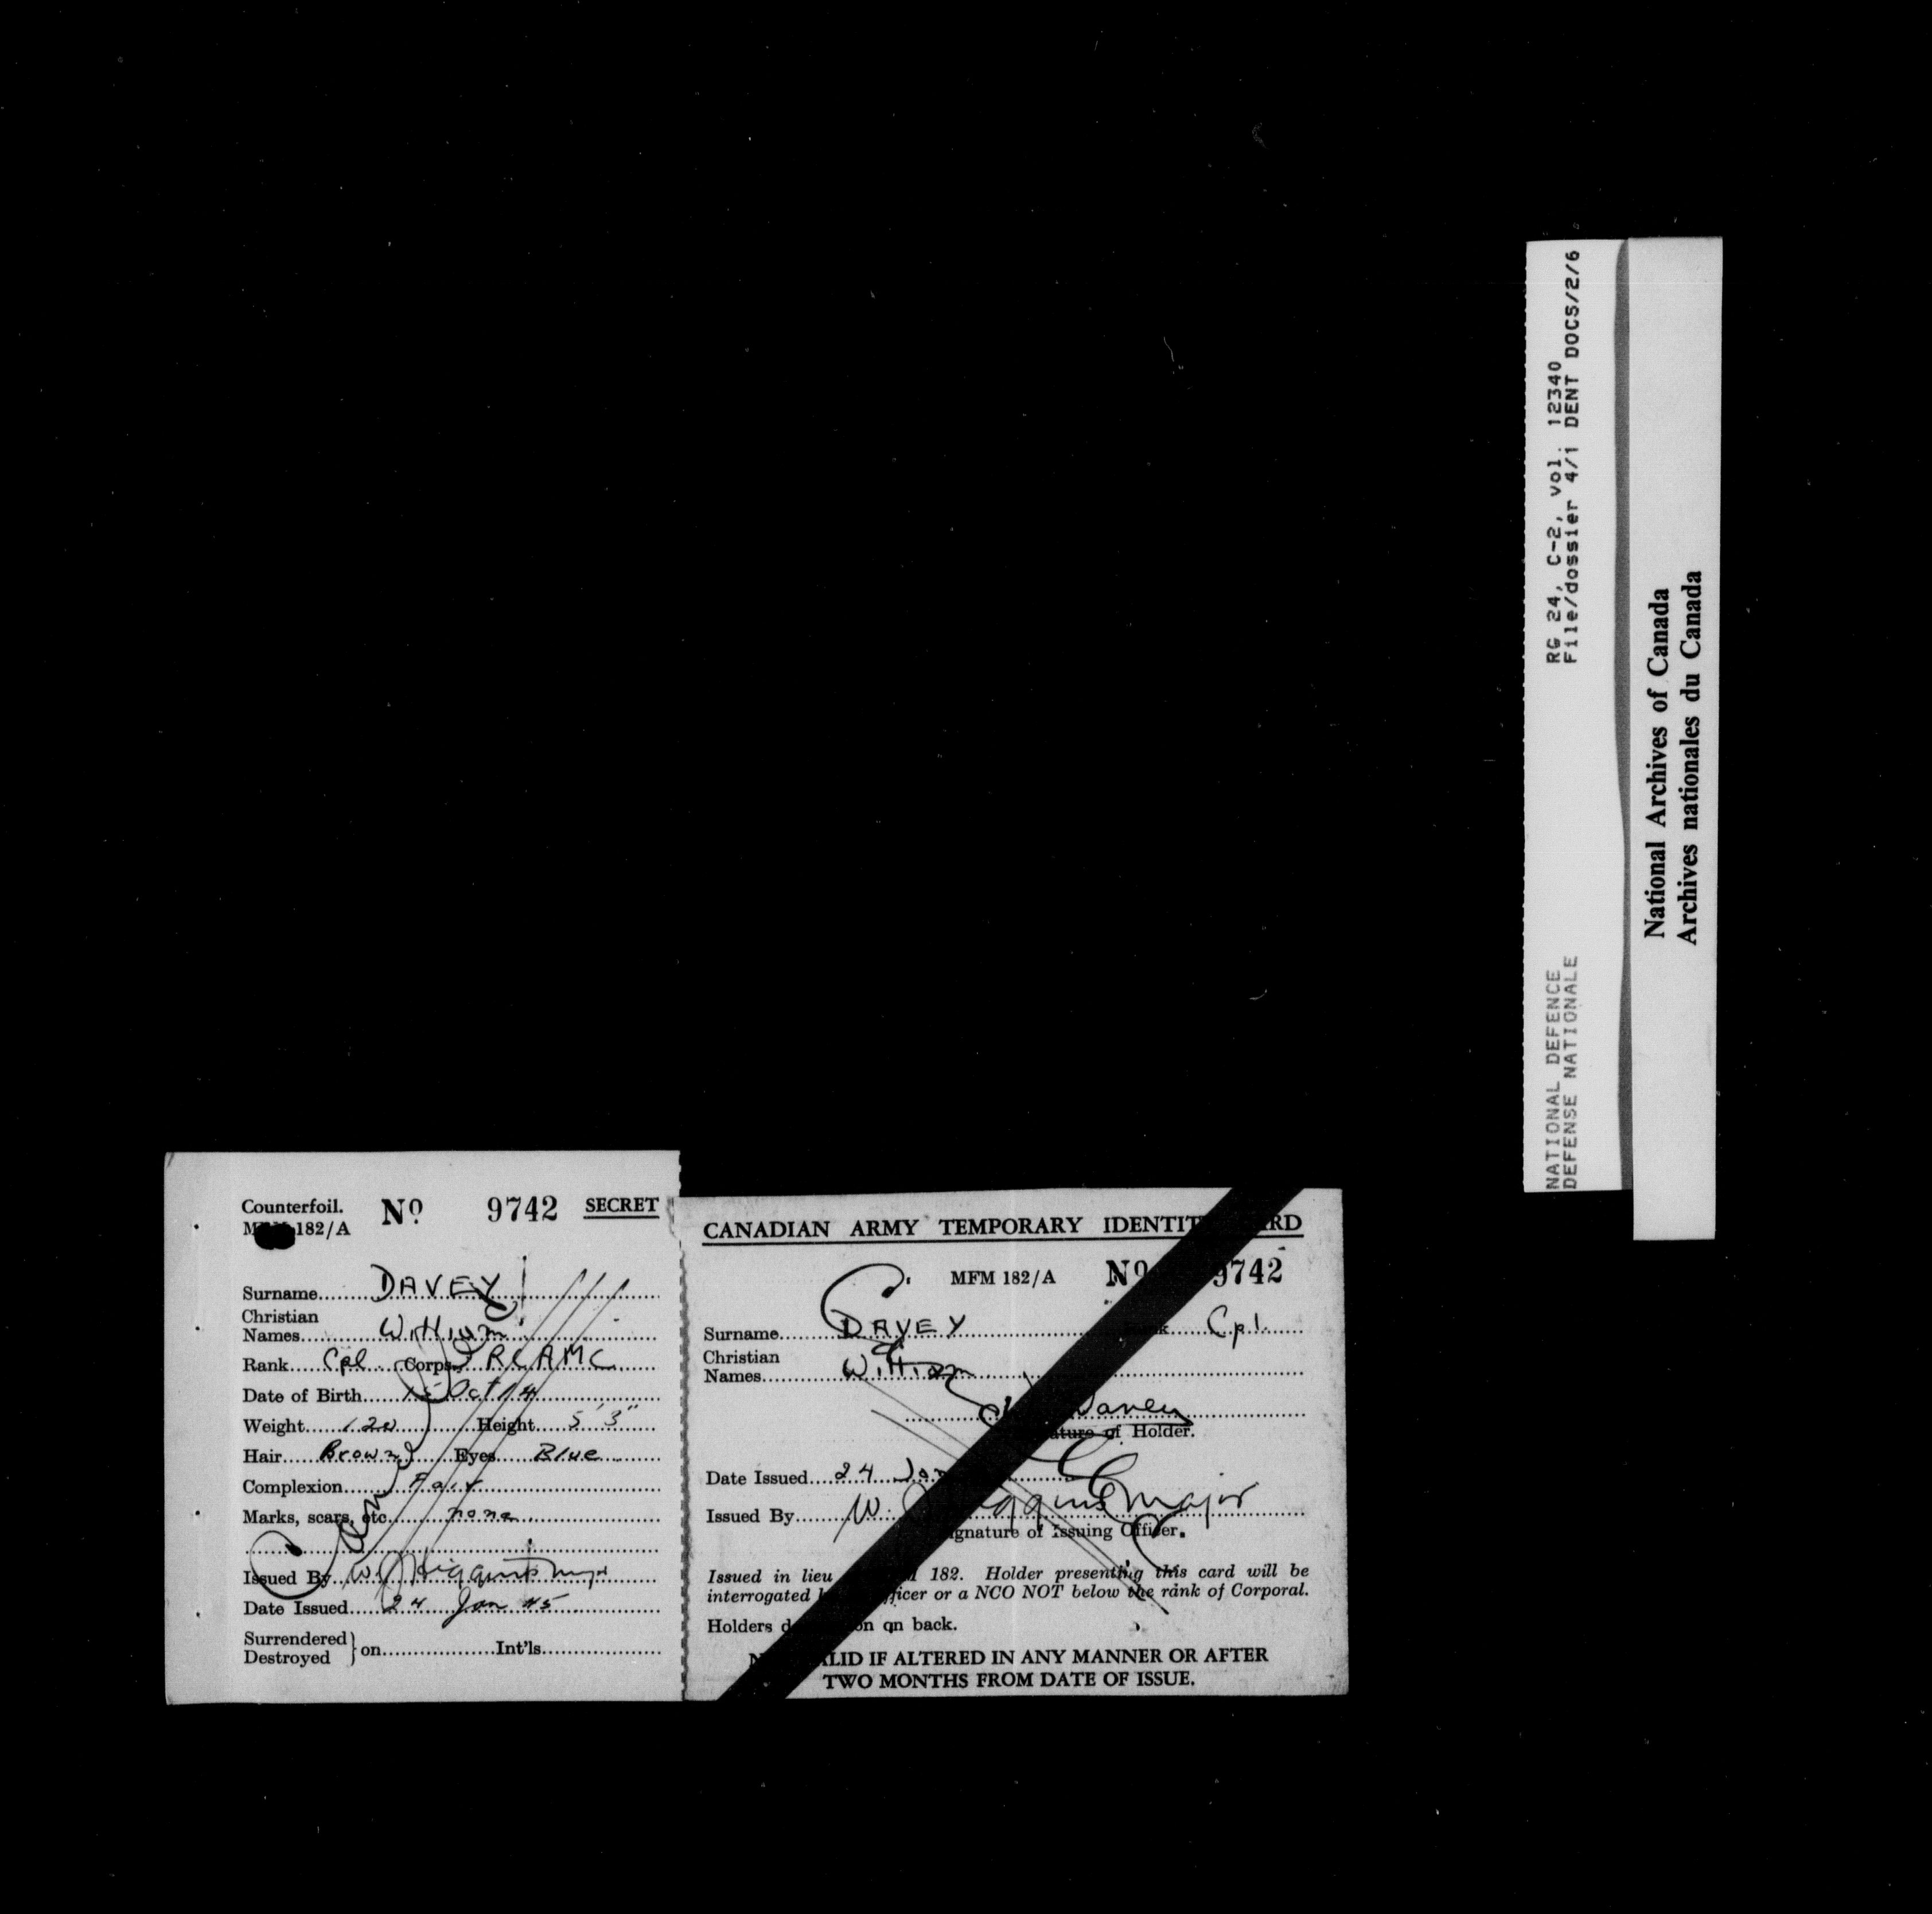 Counterfoil.
182/A
Nº 9742 SECRET
Surname DAVEY
Christian
Names William
Rank Cpl Corps RCAMC
Date of Birth Oct 14
Weight 120 Height 5' 3"
Hair Brown Eyes Blue
Complexion Fair
Marks, scars, etc. none
Issued By W. Higgins Major
Date Issued 24 Jan 45
Surrendered
Destroyed } on Int'ls
CANADIAN ARMY TEMPORARY
MFM 182/A Nº 9742
Surname DAVEY Cpl.
Christian
Names William
Davey
of Holder.
Date Issued 24 Jan
Issued By W. Major
of Issuing Officer.
Issued in lieu 182. Holder presenting this card will be
interrogated or a NCO NOT below the rank of Corporal.
Holders on back.
IF ALTERED IN ANY MANNER OR AFTER
TWO MONTHS FROM DATE OF ISSUE.
NATIONAL DEFENCE RG 24, C-2, vol. 12340
DEFENSE NATIONALE File/dossier 4/i DENT DOCS/2/6
National Archives of Canada
Archives nationales du Canada